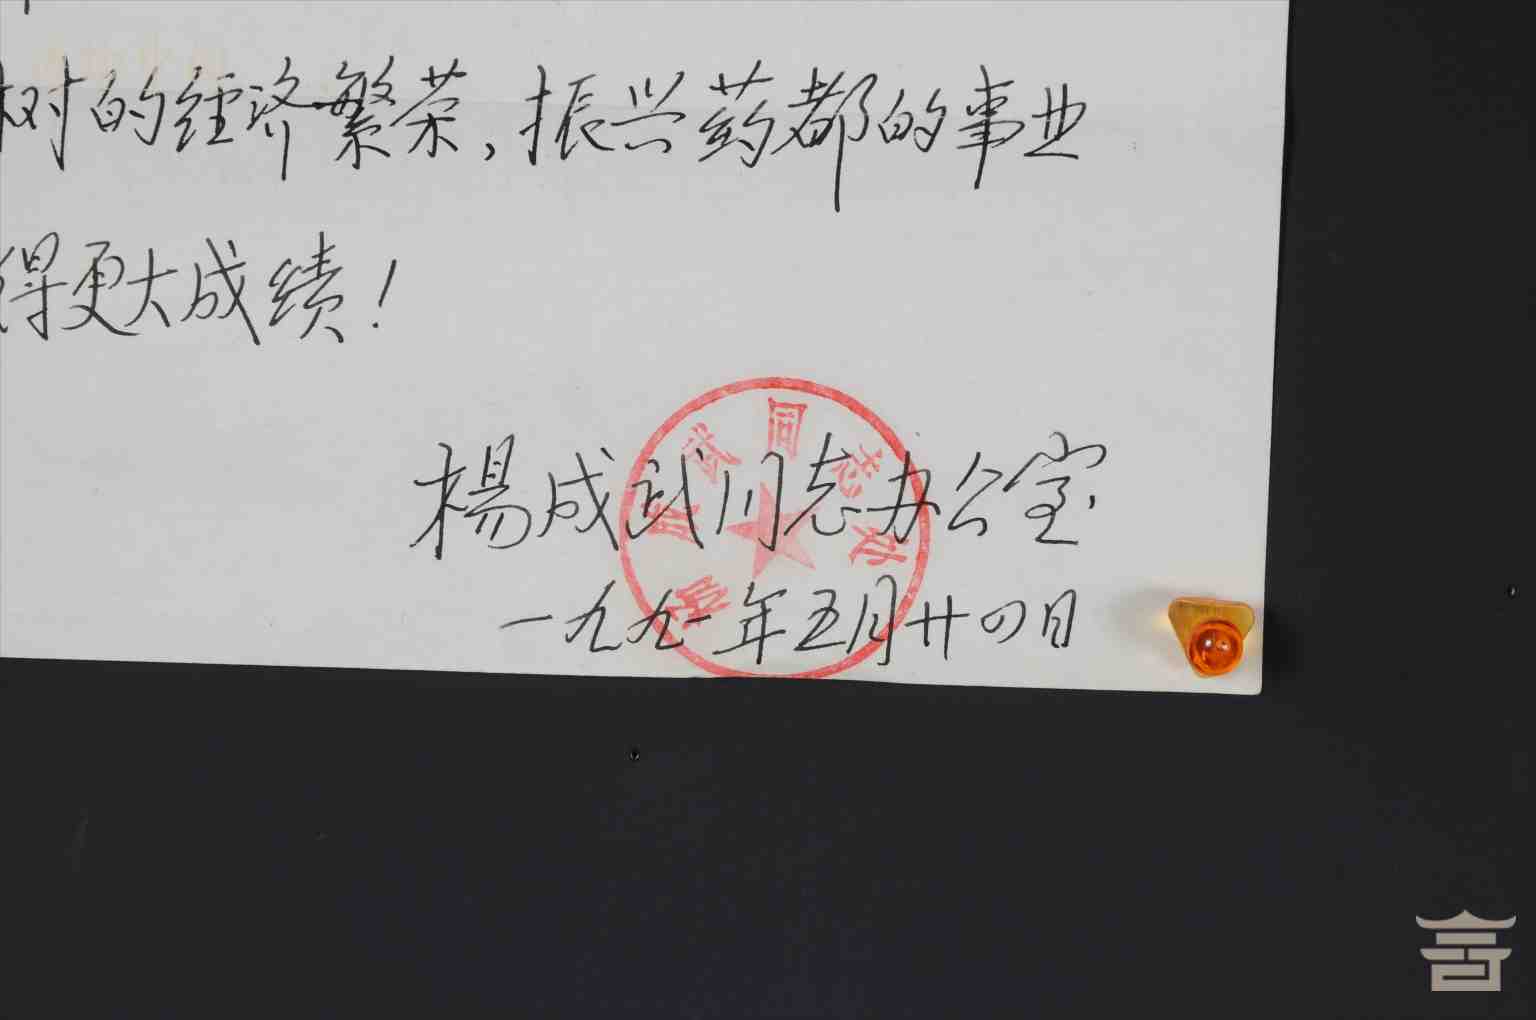 树的经济繁荣，振兴药都的事业
得更大成绩！
楊成武同志办公室
一九九一年五月廿四日
武同志办
室